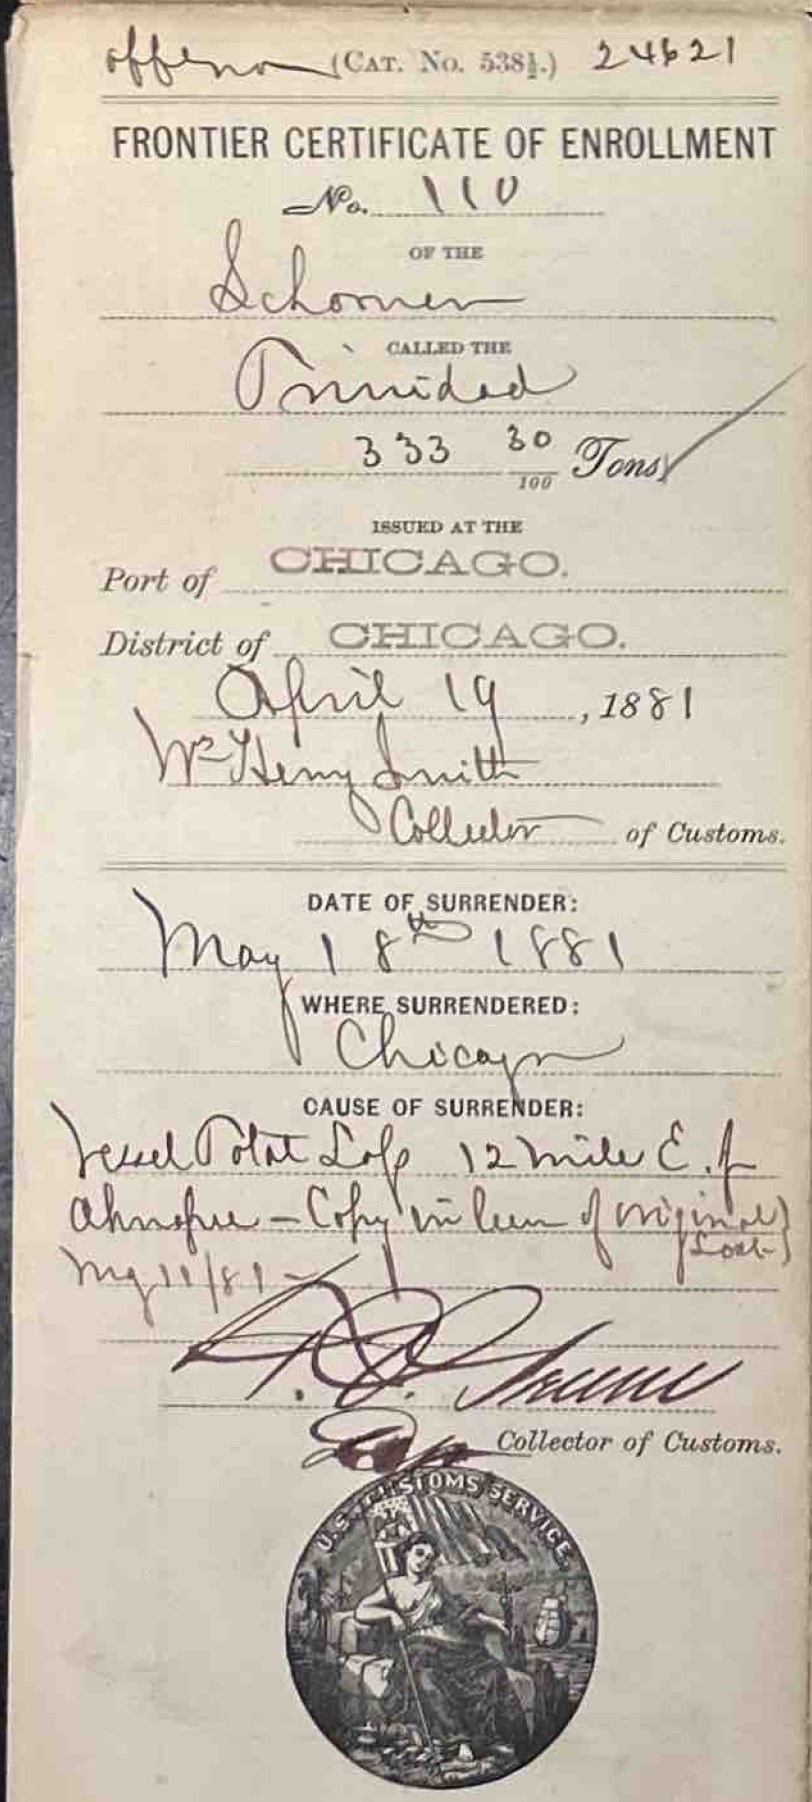 (CAT. No. 538½.) 24621
FRONTIER CERTIFICATE OF ENROLLMENT
No. 110
OF THE
Schooner
CALLED THE
Trinidad
333 30/100 Tons
ISSUED AT THE
Port of CHICAGO.
District of CHICAGO.
April 19, 1881
Wm Henry Smith
Collector of Customs.
DATE OF SURRENDER:
May 18th 1881
WHERE SURRENDERED:
Chicago
CAUSE OF SURRENDER:
Vessel Total Loss 12 mile E. of
Ahnapee - Copy in lieu of original
Lost
11/81
Dep Collector of Customs.
U.S. CUSTOMS SERVICE